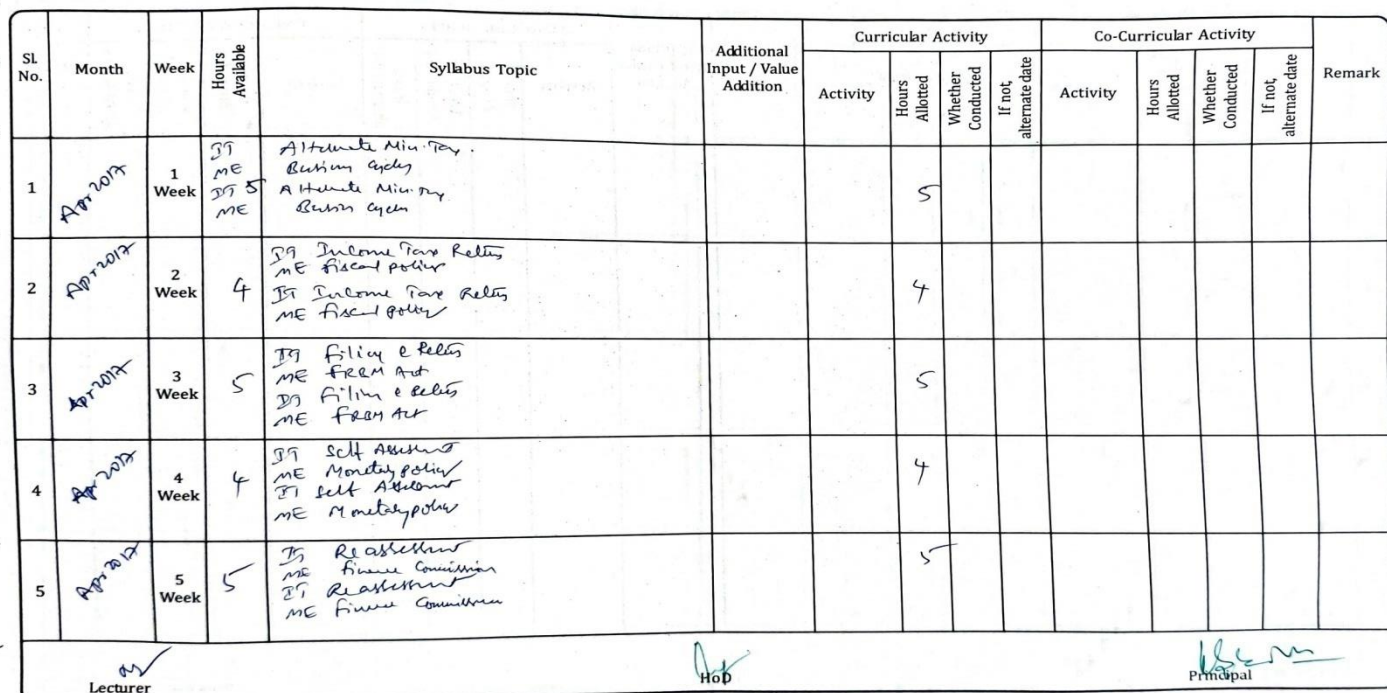 Sl. No.
Month
Week
Hours Available
Syllabus Topic
Additional Input / Value Addition
Curricular Activity
Activity
Hours Allotted
Whether Conducted
If not, alternate date
Co-Curricular Activity
Activity
Hours Allotted
Whether Conducted
If not, alternate date
Remark
1 Apr 2017 1 Week 5 5
IT Alternate Min. Tax.
ME Business Cycles
IT Alternate Min. Tax
ME Business Cycles
2 Apr 2017 2 Week 4 4
IT Income Tax Returns
ME Fiscal policy
IT Income Tax Returns
ME Fiscal policy
3 Apr 2017 3 Week 5 5
IT Filing e Returns
ME FRBM Act
IT Filing e Returns
ME FRBM Act
4 Apr 2017 4 Week 4 4
IT Self Assessment
ME Monetary policy
IT Self Assessment
ME Monetary policy
5 Apr 2017 5 Week 5 5
IT Reassessment
ME Finance Commission
IT Reassessment
ME Finance Commission
Lecturer
HoD
Principal